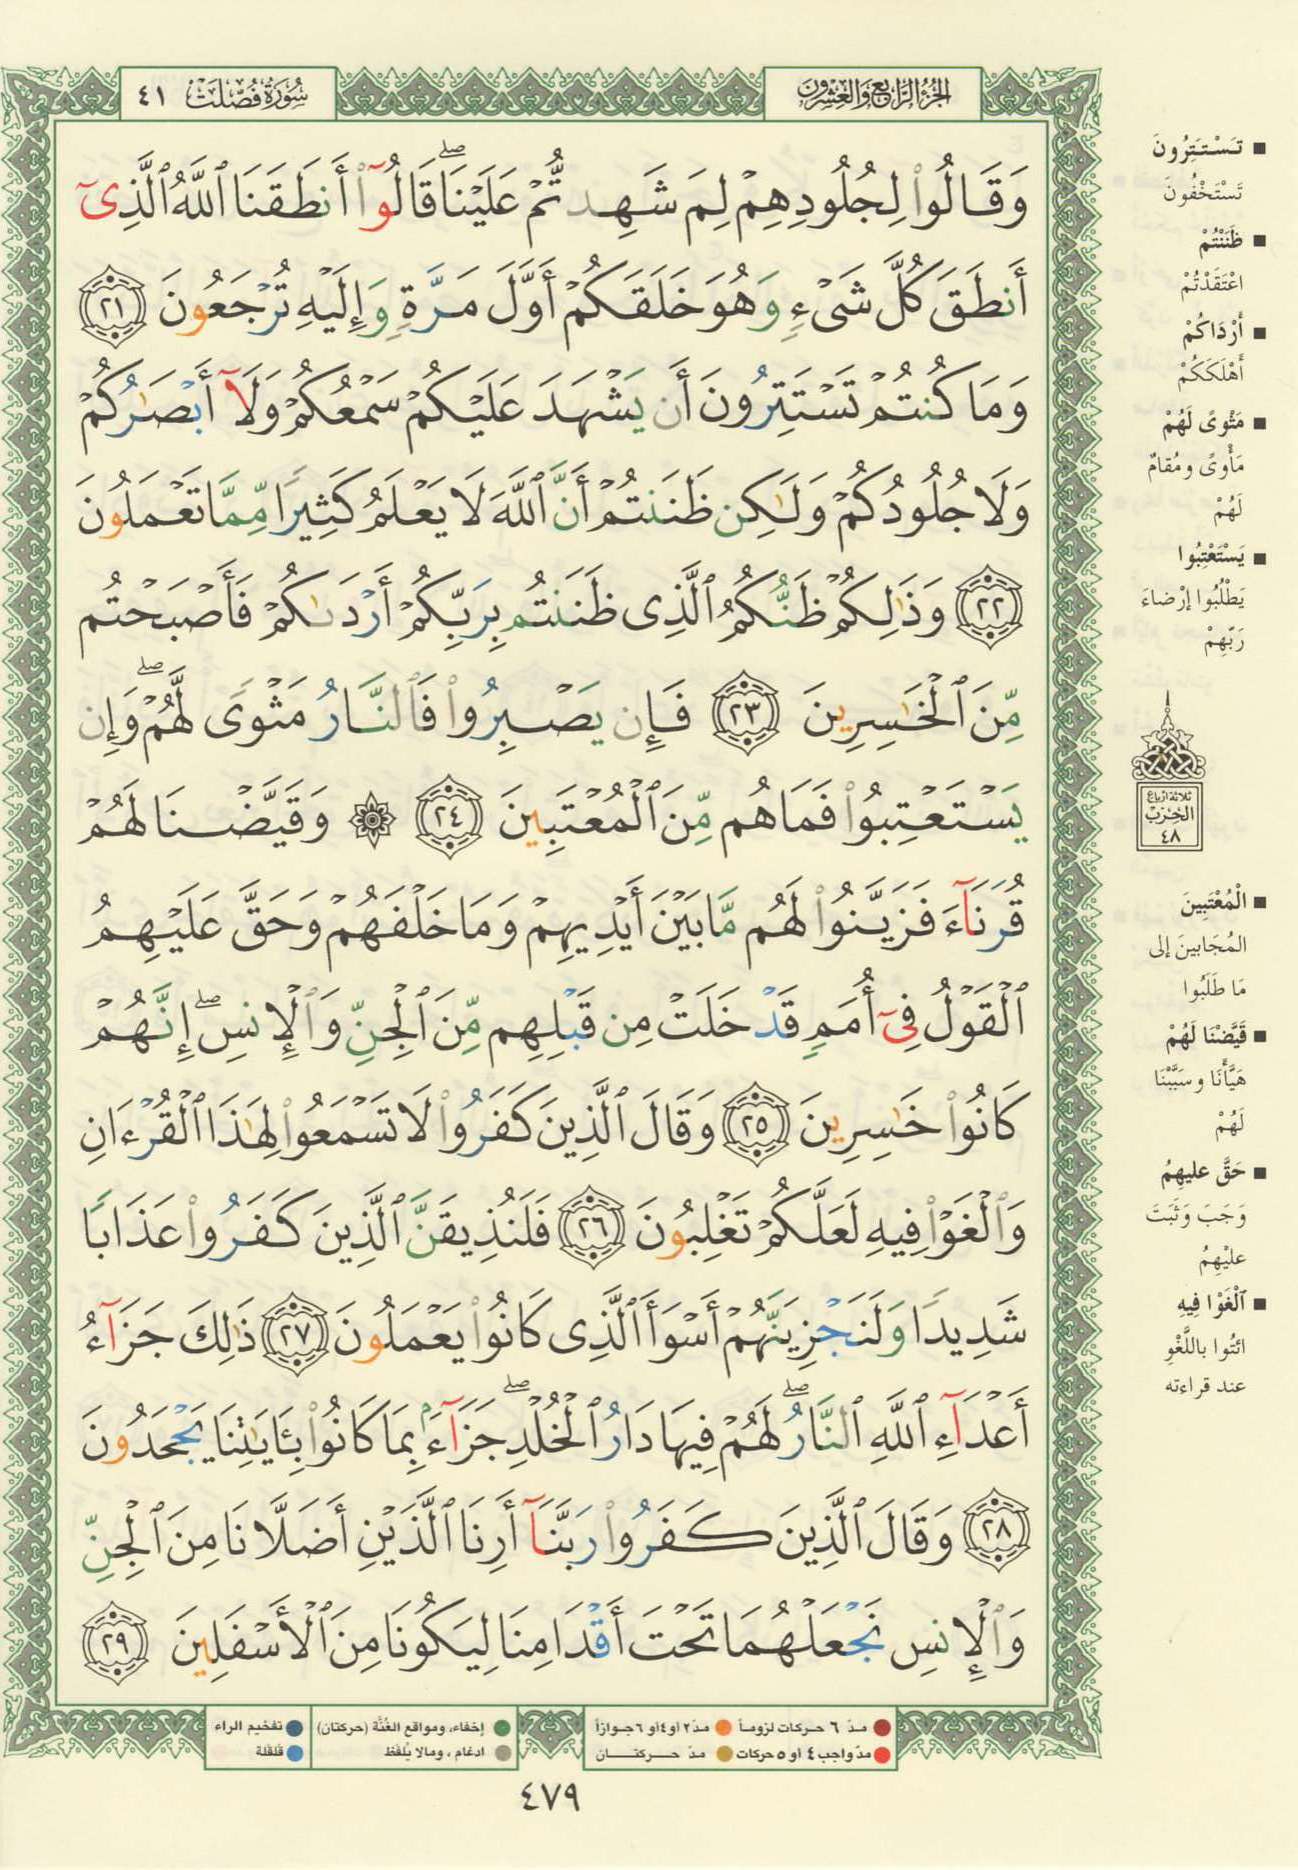 الجزء الرابع والعشرون
سورة فصلت ٤١
وَقَالُوا۟ لِجُلُودِهِمْ لِمَ شَهِدتُّمْ عَلَيْنَا ۖ قَالُوٓا۟ أَنطَقَنَا ٱللَّهُ ٱلَّذِىٓ
أَنطَقَ كُلَّ شَىْءٍ وَهُوَ خَلَقَكُمْ أَوَّلَ مَرَّةٍ وَإِلَيْهِ تُرْجَعُونَ ٢١
وَمَا كُنتُمْ تَسْتَتِرُونَ أَن يَشْهَدَ عَلَيْكُمْ سَمْعُكُمْ وَلَآ أَبْصَٰرُكُمْ
وَلَا جُلُودُكُمْ وَلَٰكِن ظَنَنتُمْ أَنَّ ٱللَّهَ لَا يَعْلَمُ كَثِيرًا مِّمَّا تَعْمَلُونَ
٢٢ وَذَٰلِكُمْ ظَنُّكُمُ ٱلَّذِى ظَنَنتُم بِرَبِّكُمْ أَرْدَىٰكُمْ فَأَصْبَحْتُم
مِّنَ ٱلْخَٰسِرِينَ ٢٣ فَإِن يَصْبِرُوا۟ فَٱلنَّارُ مَثْوًى لَّهُمْ ۖ وَإِن
يَسْتَعْتِبُوا۟ فَمَا هُم مِّنَ ٱلْمُعْتَبِينَ ٢٤ ۞ وَقَيَّضْنَا لَهُمْ
قُرَنَآءَ فَزَيَّنُوا۟ لَهُم مَّا بَيْنَ أَيْدِيهِمْ وَمَا خَلْفَهُمْ وَحَقَّ عَلَيْهِمُ
ٱلْقَوْلُ فِىٓ أُمَمٍ قَدْ خَلَتْ مِن قَبْلِهِم مِّنَ ٱلْجِنِّ وَٱلْإِنسِ ۖ إِنَّهُمْ
كَانُوا۟ خَٰسِرِينَ ٢٥ وَقَالَ ٱلَّذِينَ كَفَرُوا۟ لَا تَسْمَعُوا۟ لِهَٰذَا ٱلْقُرْءَانِ
وَٱلْغَوْا۟ فِيهِ لَعَلَّكُمْ تَغْلِبُونَ ٢٦ فَلَنُذِيقَنَّ ٱلَّذِينَ كَفَرُوا۟ عَذَابًا
شَدِيدًا وَلَنَجْزِيَنَّهُمْ أَسْوَأَ ٱلَّذِى كَانُوا۟ يَعْمَلُونَ ٢٧ ذَٰلِكَ جَزَآءُ
أَعْدَآءِ ٱللَّهِ ٱلنَّارُ ۖ لَهُمْ فِيهَا دَارُ ٱلْخُلْدِ ۖ جَزَآءًۢ بِمَا كَانُوا۟ بِـَٔايَٰتِنَا يَجْحَدُونَ
٢٨ وَقَالَ ٱلَّذِينَ كَفَرُوا۟ رَبَّنَآ أَرِنَا ٱلَّذَيْنِ أَضَلَّانَا مِنَ ٱلْجِنِّ
وَٱلْإِنسِ نَجْعَلْهُمَا تَحْتَ أَقْدَامِنَا لِيَكُونَا مِنَ ٱلْأَسْفَلِينَ ٢٩
■ تَسْتَتِرُونَ
تَسْتَخْفُونَ
■ ظَنَنْتُمْ
اعْتَقَدْتُمْ
■ أَرْدَاكُمْ
أَهْلَكَكُمْ
■ مَثْوىً لَهُمْ
مَأْوىً ومُقامٌ
لَهُمْ
■ يَسْتَعْتِبُوا
يَطْلُبُوا إرْضاءَ
رَبِّهِمْ
ثلاثة أرباع
الحزب
٤٨
■ الْمُعْتَبِينَ
المُجَابينَ إلى
مَا طَلَبُوا
■ قَيَّضْنَا لَهُمْ
هَيَّأْنَا وسَبَّبْنَا
لَهُمْ
■ حَقَّ عليهِمُ
وَجَبَ وَثَبَتَ
عليْهِمُ
■ ٱلْغَوْا فِيهِ
ائتُوا باللَّغْوِ
عند قراءته
مدّ ٦ حركات لزوماً
مدّ٢ أو٤أو ٦جوازاً
إخفاء، ومواقع الغُنَّة (حركتان)
تفخيم الراء
مدّ واجب ٤ أو ٥ حركات
مدّ حركتان
ادغام ، ومالا يُلفَظ
قلقلة
٤٧٩